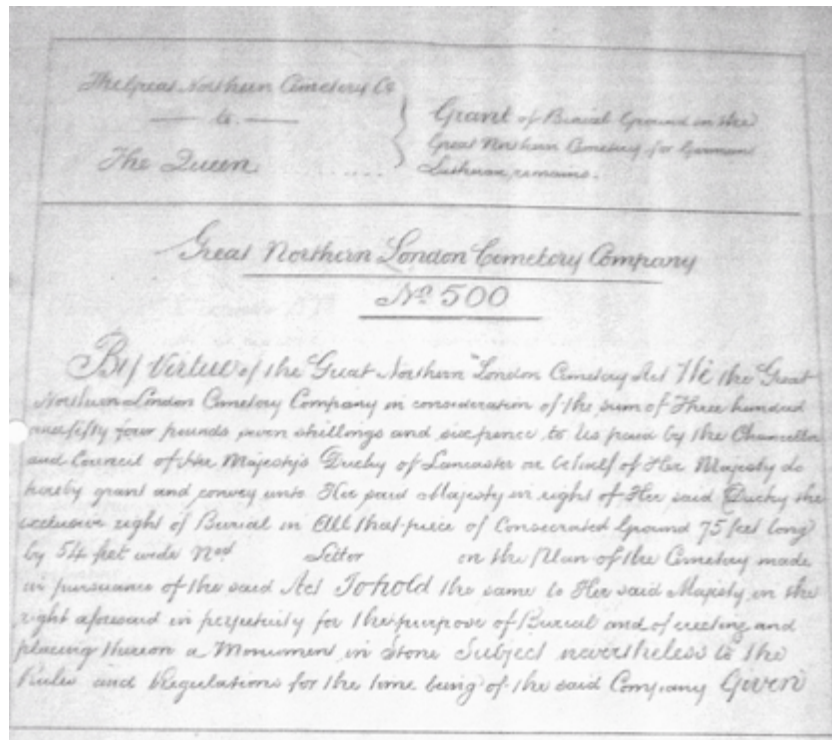 The Great Northern Cemetery Co
to
The Queen
Grant of Burial Ground in the
Great Northern Cemetery for German
Lutheran remains.
Great Northern London Cemetery Company
No 500
By Virtue of the Great Northern London Cemetery Act We the Great
Northern London Cemetery Company in consideration of the sum of Three hundred
and fifty four pounds seven shillings and sixpence to Us paid by the Chancellor
and Council of Her Majesty's Duchy of Lancaster on behalf of Her Majesty do
hereby grant and convey unto Her said Majesty in right of Her said Duchy the
exclusive right of Burial in All that piece of Consecrated Ground 75 feet long
by 54 feet wide Letter on the Plan of the Cemetery made
in pursuance of the said Act To hold the same to Her said Majesty in the
right aforesaid in perpetuity for the purpose of Burial and of erecting and
placing thereon a Monument in Stone Subject nevertheless to the
Rules and Regulations for the time being of the said Company Given